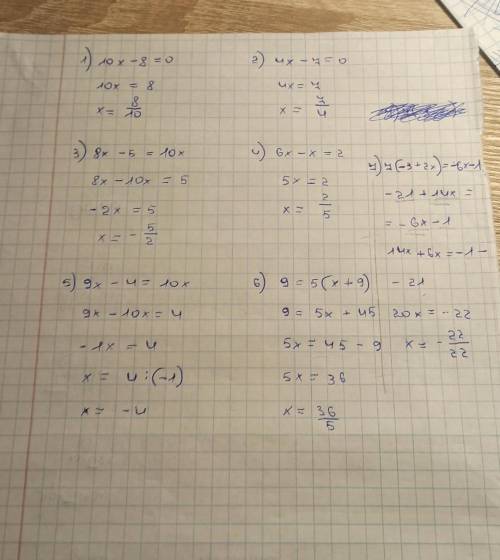 1) 10x - 8 = 0
10x = 8
x = 8/10
2) 4x - 7 = 0
4x = 7
x = 7/4
3) 8x - 5 = 10x
8x - 10x = 5
-2x = 5
x = - 5/2
4) 6x - x = 2
5x = 2
x = 2/5
5) 9x - 4 = 10x
9x - 10x = 4
-1x = 4
x = 4 : (-1)
x = -4
6) 9 = 5(x + 9)
9 = 5x + 45
5x = 45 - 9
5x = 36
x = 36/5
7) 7(-3 + 2x) = -6x - 1
-21 + 14x =
= -6x - 1
14x + 6x = -1 -
- 21
20x = -22
x = - 22/22